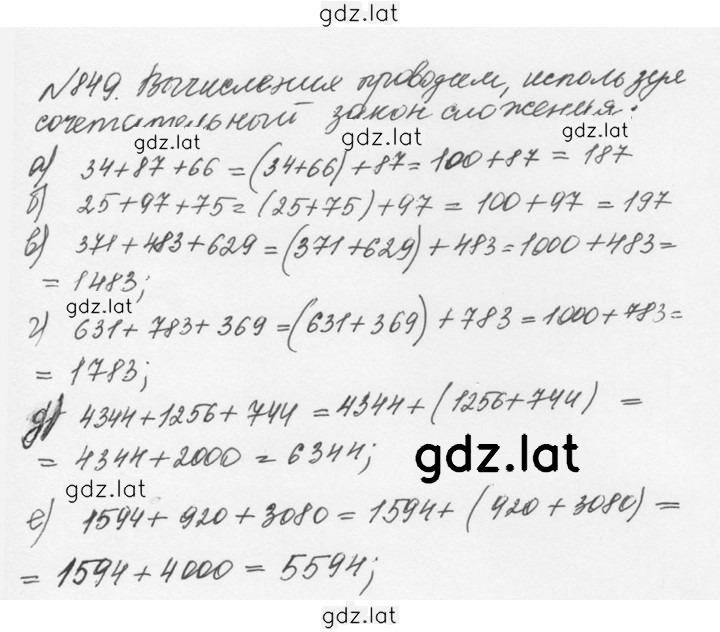 gdz.lat
№849. Вычисления проводим, используя
сочетательный закон сложения:
gdz.lat
gdz.lat
а) 34+87+66 = (34+66)+87 = 100+87 = 187
б) 25+97+75 = (25+75)+97 = 100+97 = 197
в) 371+483+629 = (371+629)+483 = 1000+483 =
= 1483;
gdz.lat
г) 631+783+369 = (631+369)+783 = 1000+783 =
= 1783;
д) 4344+1256+744 = 4344+(1256+744) =
= 4344+2000 = 6344;
gdz.lat
gdz.lat
е) 1594+920+3080 = 1594+(920+3080) =
= 1594+4000 = 5594;
gdz.lat